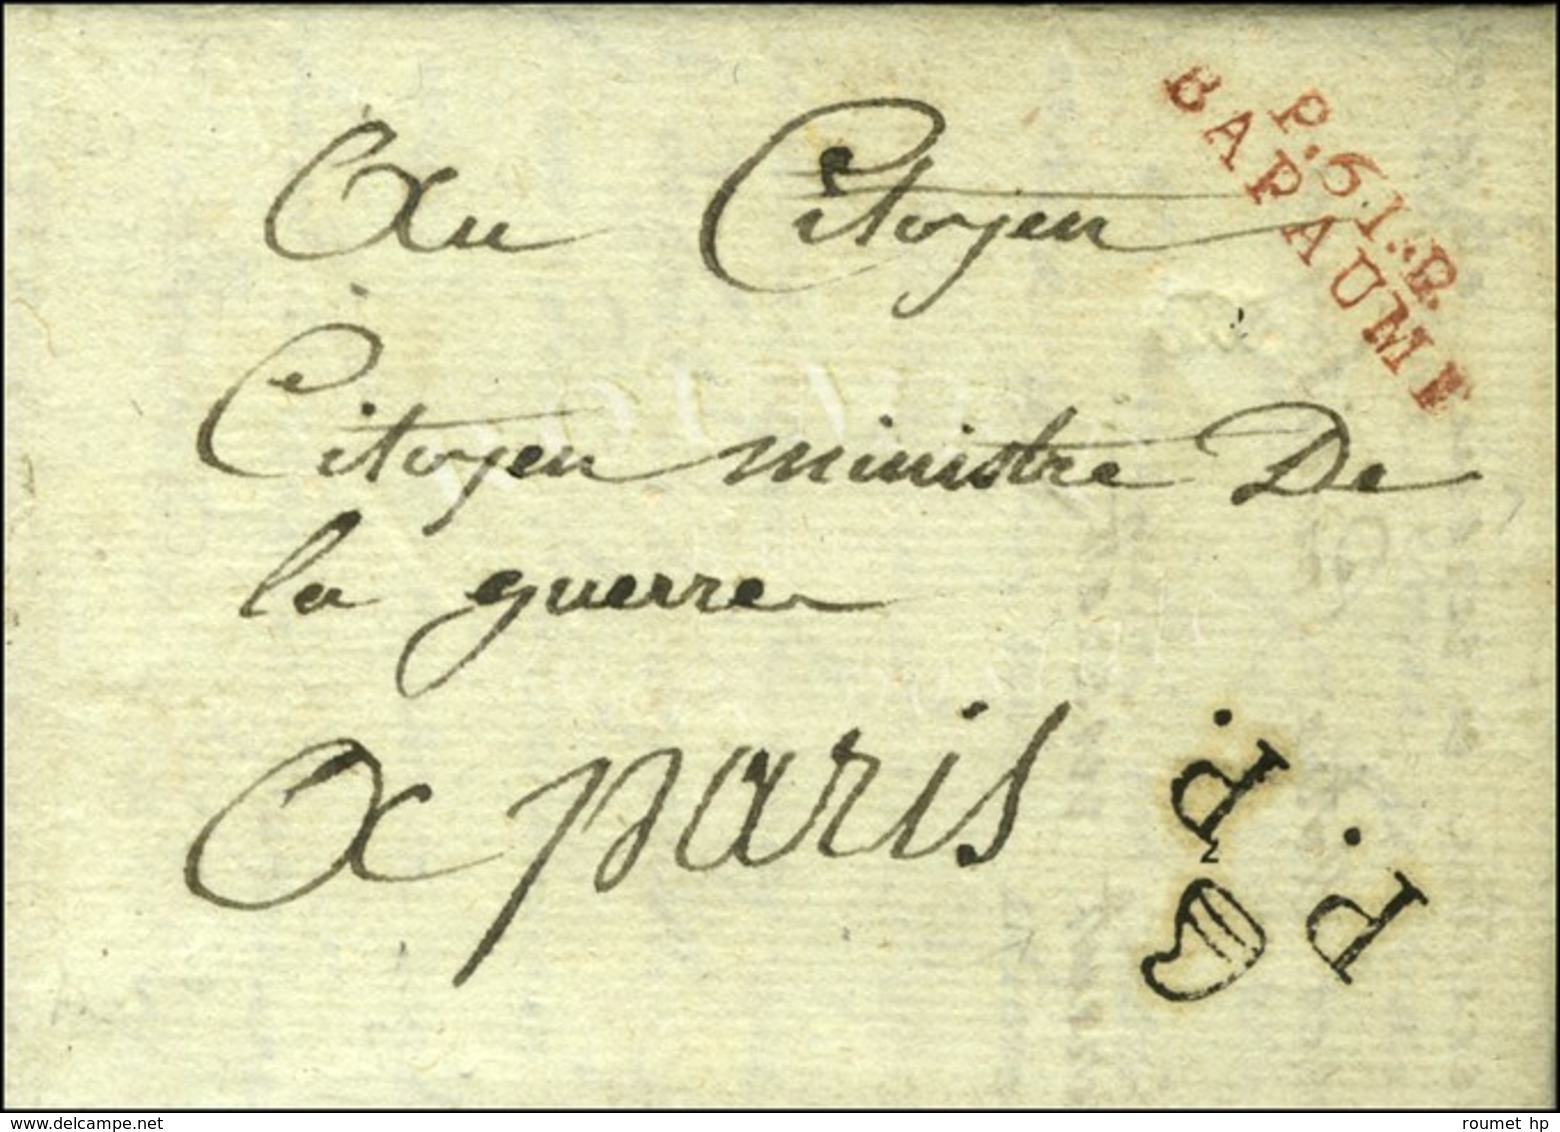 Au Citoyen
P.61.P.
BAPAUME
Citoyen ministre De
la guerre
a paris
P.
P.
www.delcampe.net
roumet hp